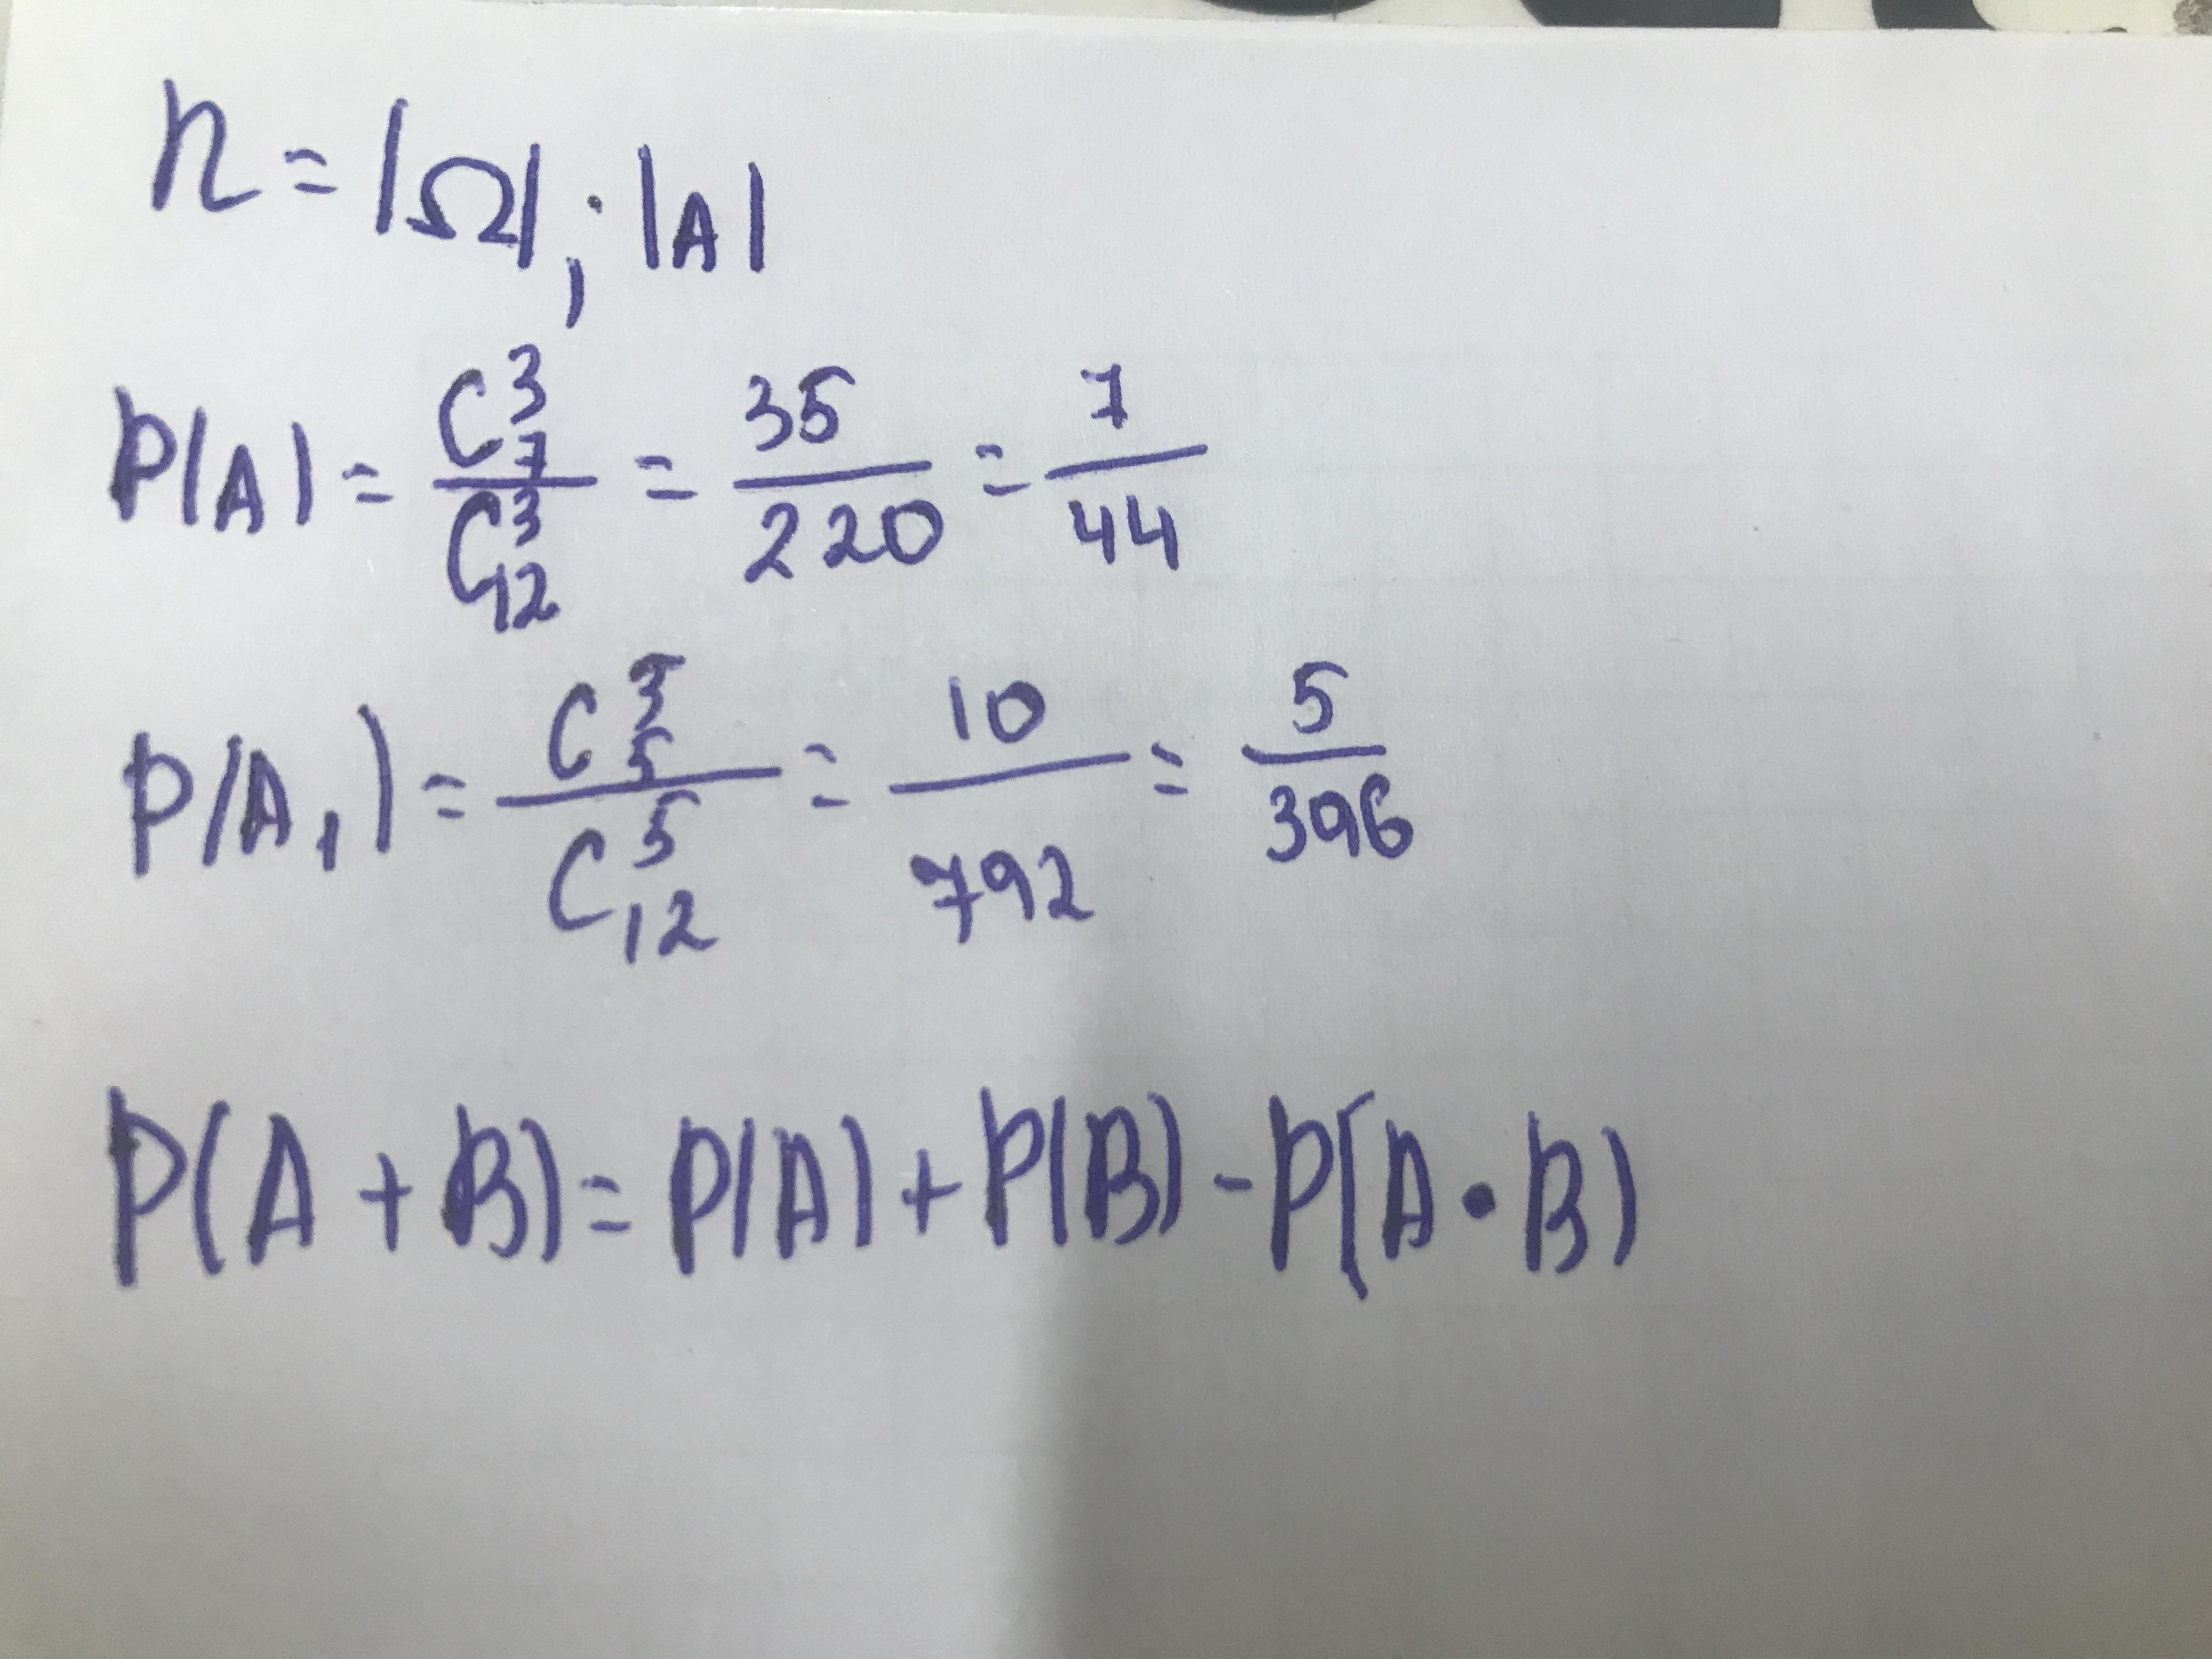 n = |Ω|; |A|
P(A) = C³₇ / C³₁₂ = 35/220 = 7/44
P(A₁) = C³₅ / C⁵₁₂ = 10/792 = 5/396
P(A + B) = P(A) + P(B) - P(A · B)